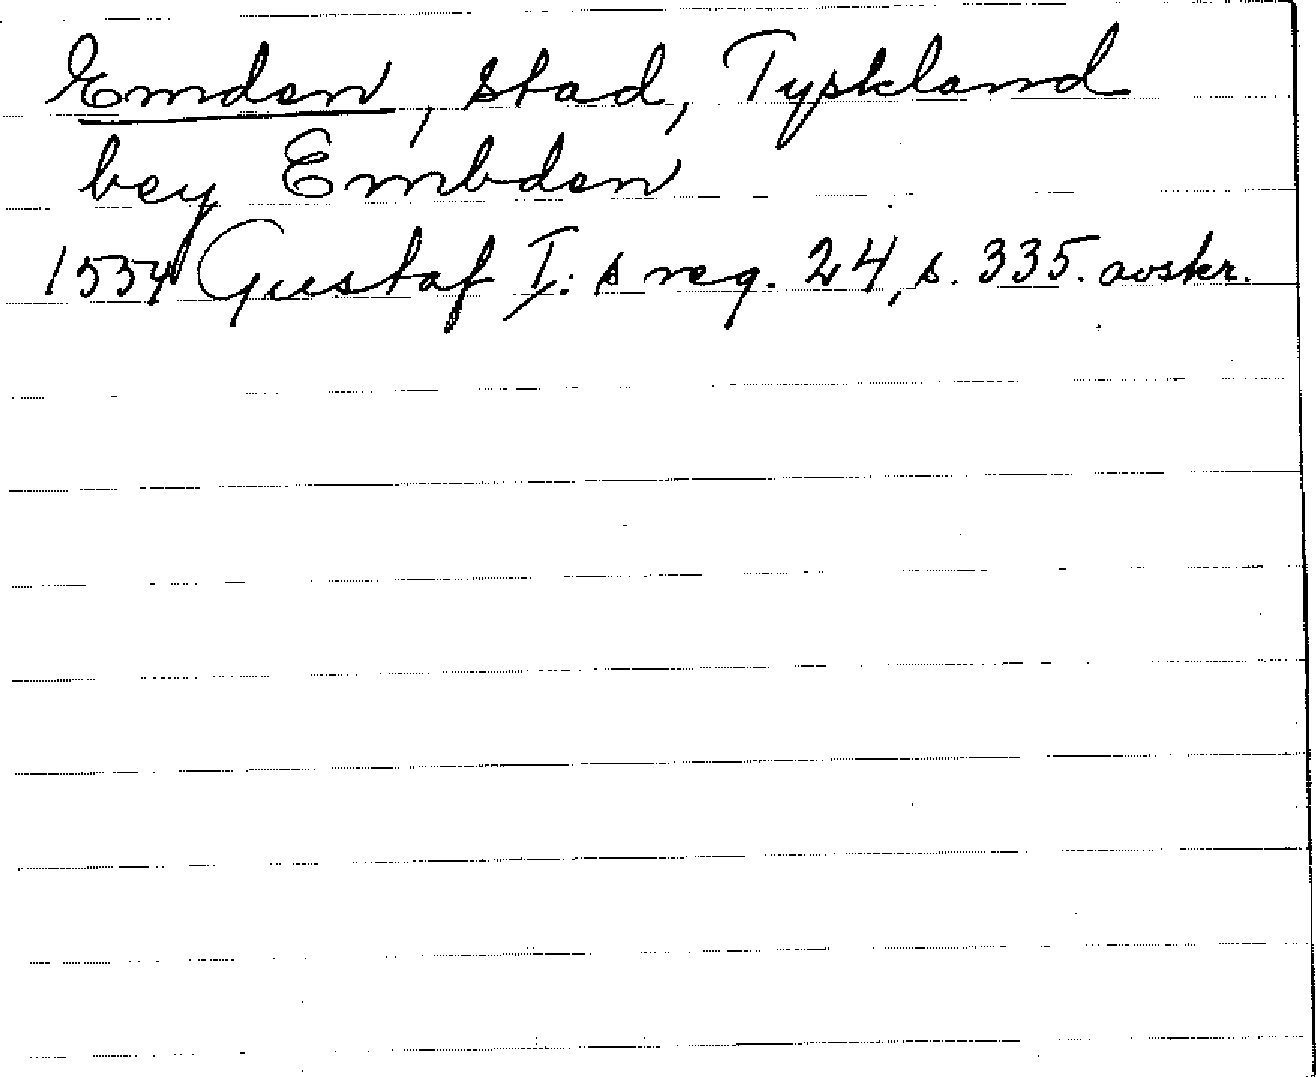 Emden, stad, Tyskland
bey Embden
1554 Gustaf I:s reg. 24, s. 335. avskr.